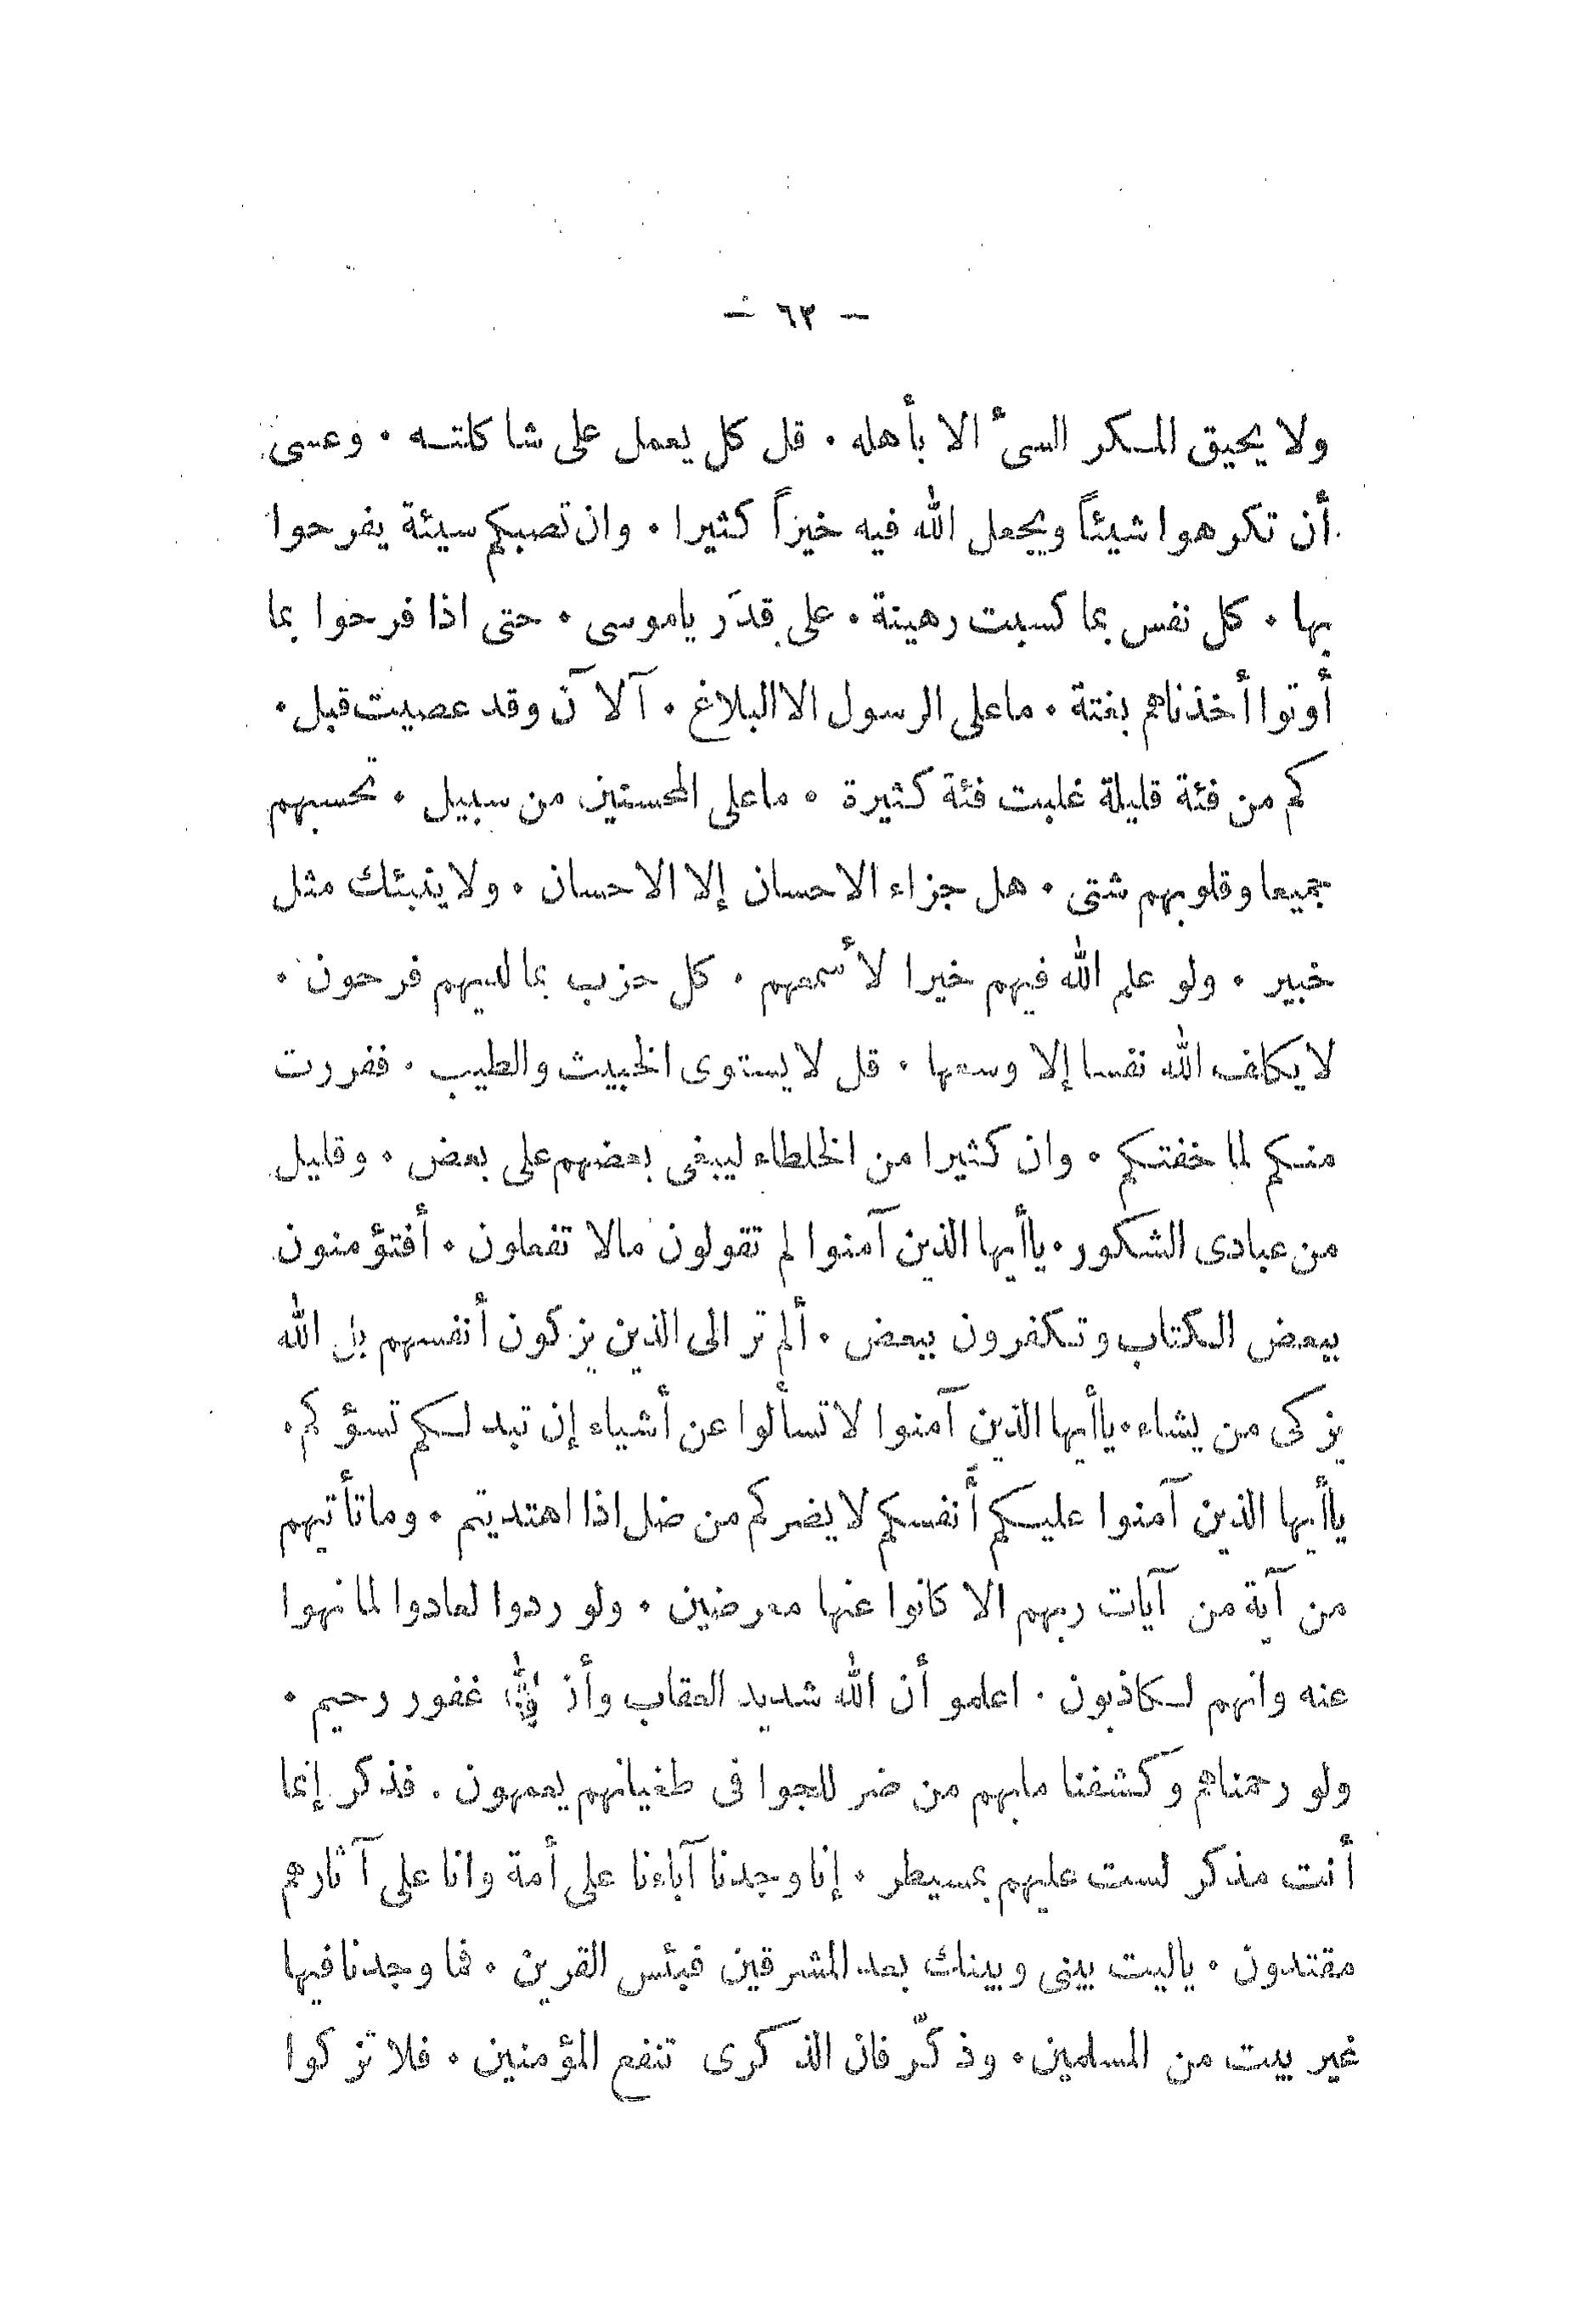 — ٦٣ —
ولا يحيق المكر السىء الا بأهله . قل كل يعمل على شاكلته . وعسى
أن تكرهوا شيئاً ويجعل الله فيه خيراً كثيرا . وان تصبكم سيئة يفرحوا
بها . كل نفس بما كسبت رهينة . على قدَر ياموسى . حتى اذا فرحوا بما
أوتوا أخذناهم بغتة . ماعلى الرسول الا البلاغ . آلآن وقد عصيت قبل .
كم من فئة قليلة غلبت فئة كثيرة . ماعلى المحسنين من سبيل . تحسبهم
جميعا وقلوبهم شتى . هل جزاء الاحسان إلا الاحسان . ولا ينبئك مثل
خبير . ولو علم الله فيهم خيرا لأسمعهم . كل حزب بما لديهم فرحون .
لا يكلف الله نفسا إلا وسعها . قل لا يستوى الخبيث والطيب . ففررت
منكم لما خفتكم . وان كثيرا من الخلطاء ليبغى بعضهم على بعض . وقليل
من عبادى الشكور . ياأيها الذين آمنوا لم تقولون مالا تفعلون . أفتؤمنون
ببعض الكتاب وتكفرون ببعض . ألم تر الى الذين يزكون أنفسهم بل الله
يزكى من يشاء . ياأيها الذين آمنوا لا تسألوا عن أشياء إن تبد لكم تسؤكم .
ياأيها الذين آمنوا عليكم أنفسكم لا يضركم من ضل اذا اهتديتم . وما تأتيهم
من آية من آيات ربهم الا كانوا عنها معرضين . ولو ردوا لعادوا لما نهوا
عنه وانهم لكاذبون . اعلمو أن الله شديد العقاب وأن الله غفور رحيم .
ولو رحمناهم وكشفنا مابهم من ضر للجوا فى طغيانهم يعمهون . فذكر إنما
أنت مذكر لست عليهم بمسيطر . إنا وجدنا آباءنا على أمة وانا على آثارهم
مقتدون . ياليت بينى وبينك بعد المشرقين فبئس القرين . فما وجدنا فيها
غير بيت من المسلمين . وذكّر فان الذكرى تنفع المؤمنين . فلا تزكوا